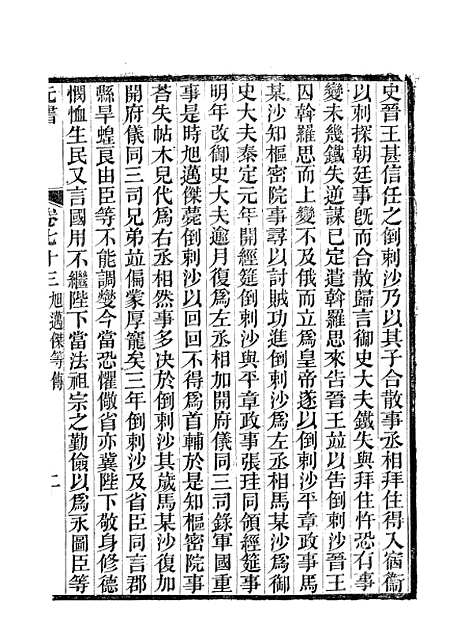 史晉王甚信任之倒剌沙乃以其子合散事丞相拜住得入宿衞
以刺探朝廷事旣而合散歸言御史大夫鐵失與拜住忤恐有事
變未幾鐵失逆謀已定遣斡羅思來告晉王並以告倒剌沙晉王
囚斡羅思而上變不及俄而立爲皇帝遂以倒剌沙平章政事馬
某沙知樞密院事尋以討賊功進倒剌沙爲左丞相馬某沙爲御
史大夫泰定元年開經筵倒剌沙與平章政事張珪同領經筵事
明年改御史大夫逾月復爲左丞相加開府儀同三司錄軍國重
事是時旭邁傑薨倒剌沙以回回不得爲首輔於是知樞密院事
荅失帖木兒代爲右丞相然事多决於倒剌沙其歲馬某沙復加
開府儀同三司兄弟並偏蒙厚寵矣三年倒剌沙及省臣同言郡
縣旱蝗良由臣等不能調燮今當恐懼儆省亦冀陛下敬身修德
憫恤生民又言國用不繼陛下當法祖宗之勤儉以爲永圖臣等
元書
卷七十三 旭邁傑等傳
二